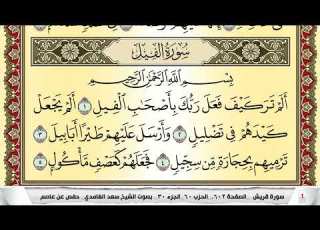 سُورَةُ الفِيلِ
بِسْمِ اللَّهِ الرَّحْمَٰنِ الرَّحِيمِ
أَلَمْ تَرَ كَيْفَ فَعَلَ رَبُّكَ بِأَصْحَابِ الْفِيلِ ١ أَلَمْ يَجْعَلْ
كَيْدَهُمْ فِي تَضْلِيلٍ ٢ وَأَرْسَلَ عَلَيْهِمْ طَيْرًا أَبَابِيلَ ٣
تَرْمِيهِمْ بِحِجَارَةٍ مِنْ سِجِّيلٍ ٤ فَجَعَلَهُمْ كَعَصْفٍ مَأْكُولٍ ٥
سورة قريش الصفحة ٦٠٢ الحزب ٦٠ الجزء ٣٠ بصوت الشيخ سعد الغامدي حفص عن عاصم